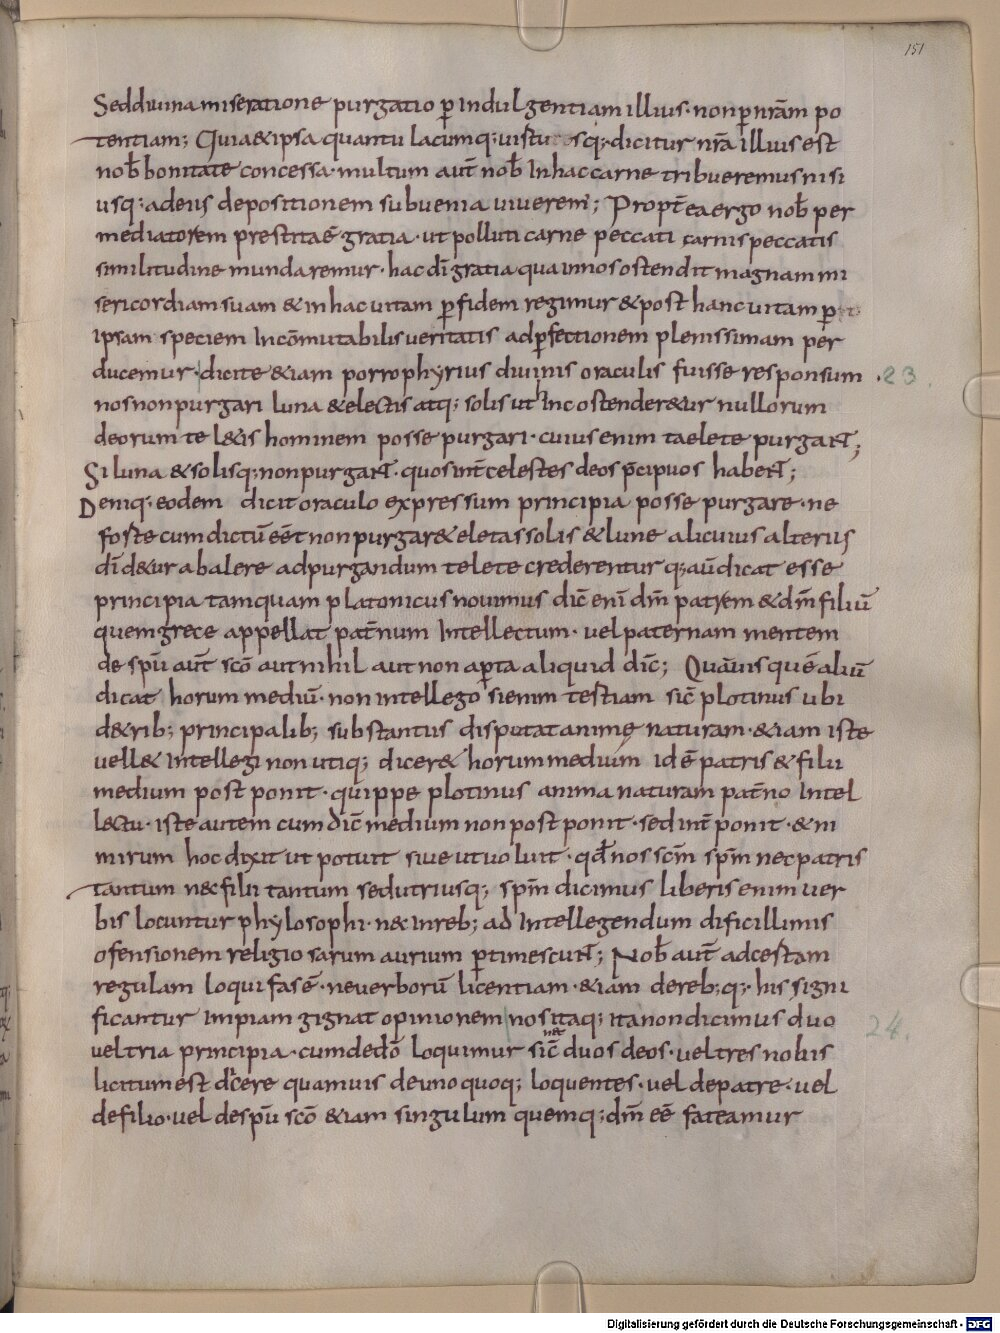 151
Seddiuina miseratione purgatio ꝑ indulgentiam illius· non ꝑ nr̄am po
tentiam; Quia & ipsa quantulacumq; uistu sq; dicitur nr̄a illius est
nob̄ bonitate concessa· multum aut̄ nob̄ In hac carne tribueremus nisi
usq; ad eius depositionem sub uenia uiuerem̄; Propt̄ ea ergo nob̄ per
mediatorem prestita ē gratia· ut polluti carne peccati carnis peccatis
similitudine mundaremur· hac dī gratia qua innos ostendit magnam mi
sericordiam suam & in hac uitam ꝑ fidem regimur & post hanc uitam ꝑ
ipsam speciem Incōmutabilis ueritatis adꝑfectionem plenissimam per
ducemur· dicit & &iam porrophyrius diuinis oraculis fuisse responsum ·23.
nos non purgari luna & electis atq; solis ut Inc ostender&ur nullorum
deorum tel&is hominem posse purgari· cuius enim taelete purgant;
Si luna & solisq; non purgant· quos int̄ celestes deos p̄cipuos habent;
Deniq; eodem dicit oraculo expressum principia posse purgare· ne
foste cum dictū eēt non purgar& eletas solis & lune alicuius alterius
dī d&ur abalere adpurgandum telete crederentur q; aūdicat esse
principia tamquam platonicus nouimus dic̄ enī dm̄ patrem & dm̄ filiū
quem grece appellat pat̄num Intellectum· uel paternam mentem
de spū aut̄ scō aut nihil aut non aꝑta aliquid dic̄; Quāuis quē aliū
dicat horum mediū· non intellego si enim testiam sic̄ plotinus ubi
d&rib; principalib; substantus disputat animę naturam· &iam iste
uell& Intellegi non utiq; dicer& horum medium id ē patris & filii
medium post ponit· quippe plotinus anima naturam pat̄no Intel
l&ctu· iste autem cum dic̄ medium non post ponit· sed int̄ ponit· & ni
mirum hoc dixit ut potuit siue ut uoluit· qđ nos scm̄ spm̄ nec patris
tantum nec filii tantum sed utriusq; spm̄ dicimus liberis enim uer
bis locuntur phylosophi· n& inreb; ad Intellegendum dificillimis
ofensionem religiosarum aurium ꝑtimescunt; Nob̄ aut̄ adcestam
regulam loqui fas ē· ne uerborū licentiam· &iam dereb; q; his signi
ficantur impiam gignat opinionem nos itaq; ita non dicimus duo 24.
uel tria principia· cum dedō loquimur sic̄ nec duos deos· uel tres nobis
licitum est dicere quamuis deuno quoq; loquentes· uel depatre· uel
defilio· uel despū scō &iam singulum quemq; dm̄ eē fateamur
Digitalisierung gefördert durch die Deutsche Forschungsgemeinschaft - DFG